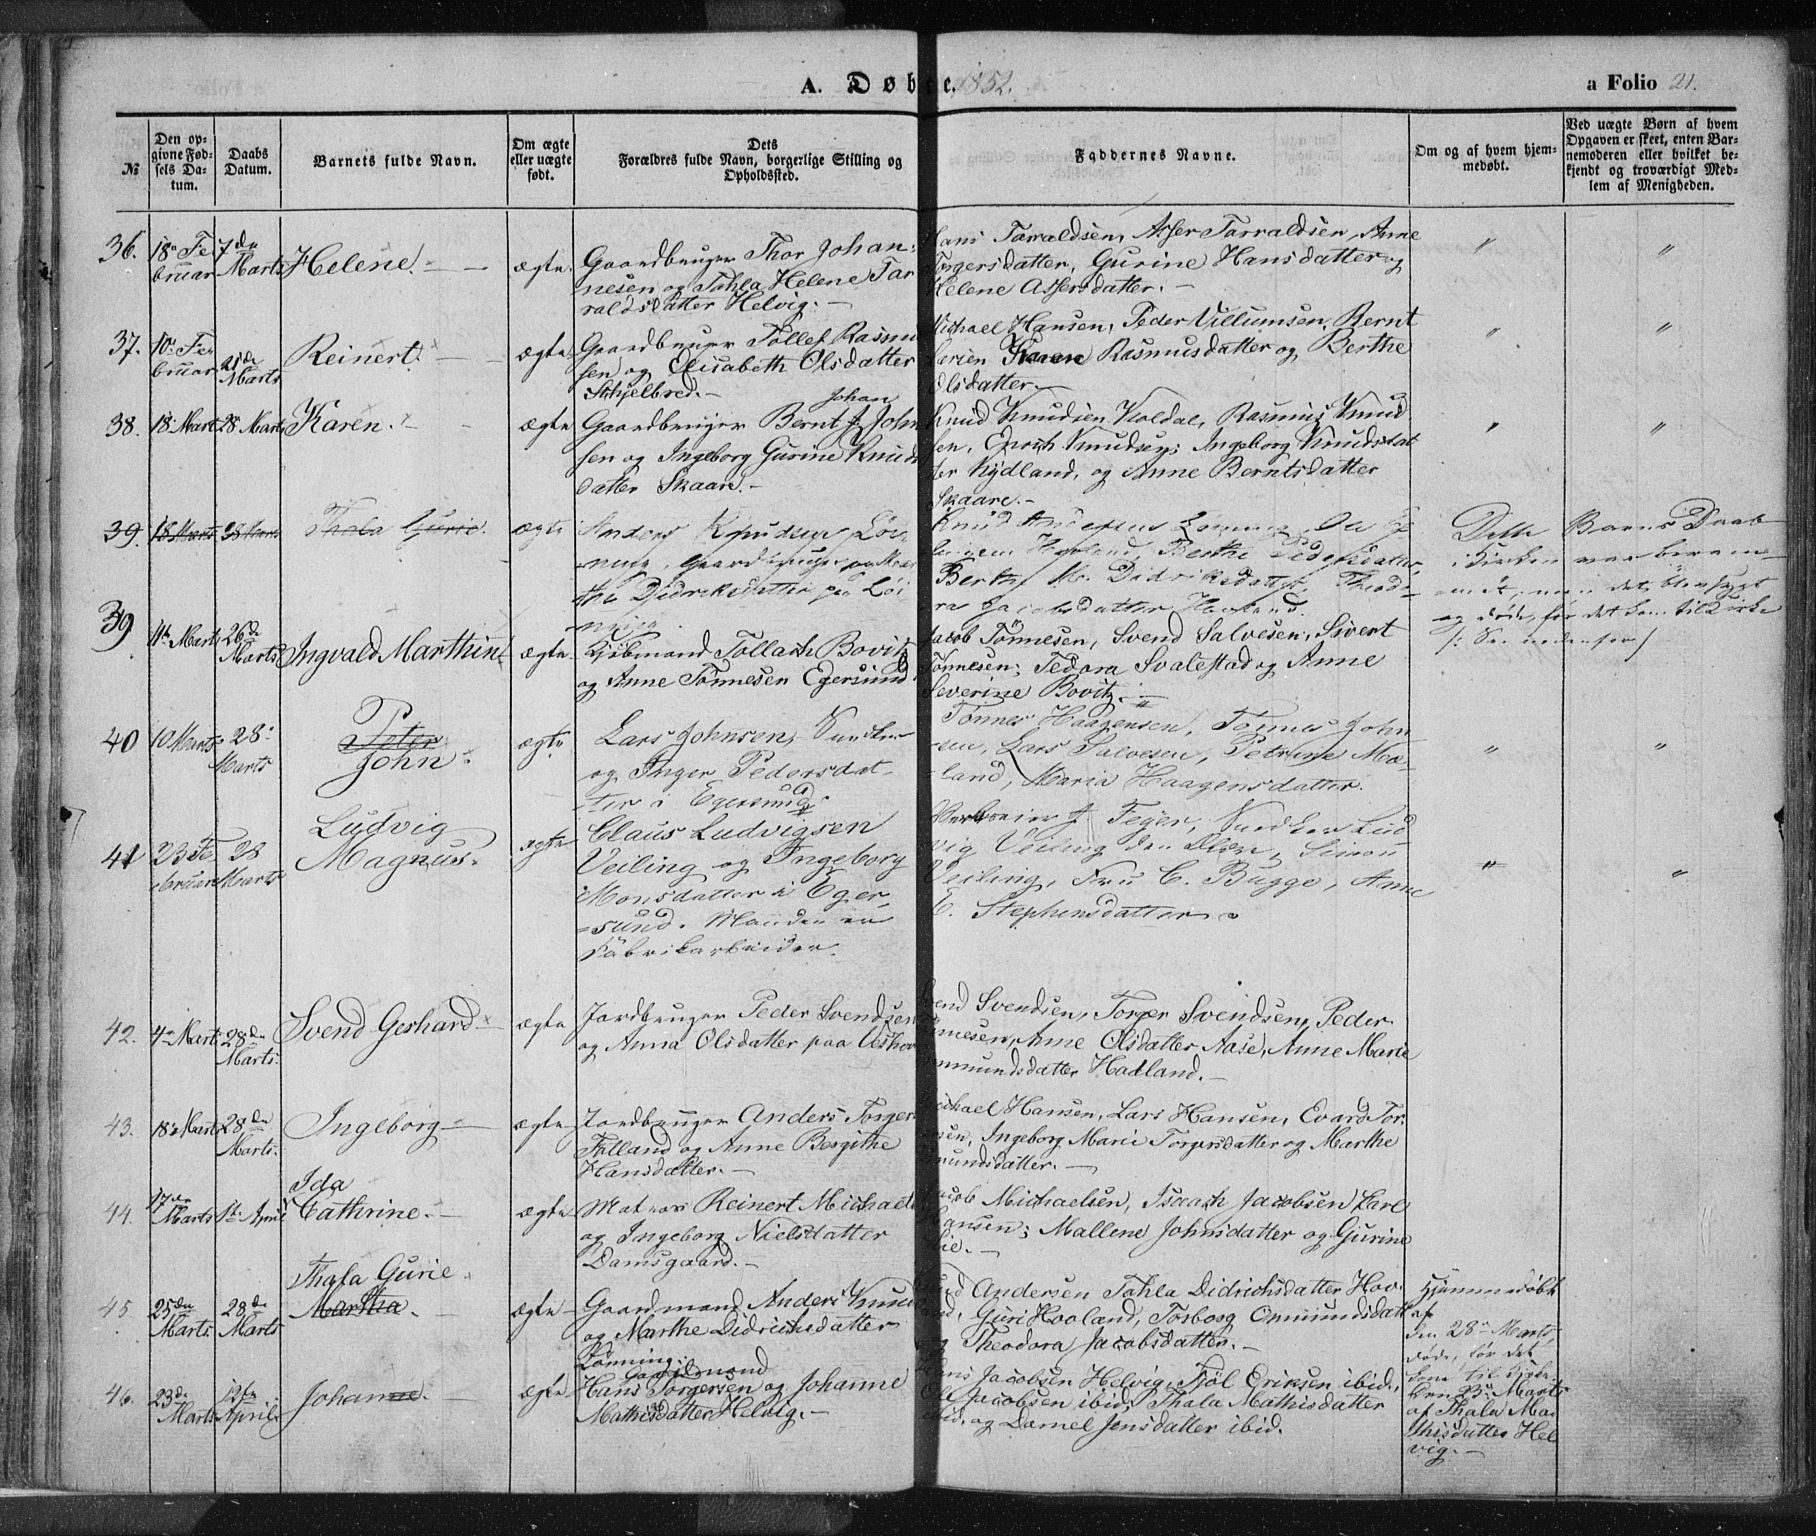 A. Døbte. 1852. a Folio 21.
№
Den opgivne Fødsels Datum.
Daabs Datum.
Barnets fulde Navn.
Om ægte eller uægte født.
Dets Forældres fulde Navn, borgerlige Stilling og Opholdssted.
Faddernes Navne.
Om og af hvem hjemmedøbt.
Ved uægte Børn af hvem Opgaven er skeet, enten Barnemoderen eller hvilket bekjendt og troværdigt Medlem af Menigheden.
36. 18 Februar 7de Marts Helene. ægte.
Gaardbruger Thor Johan-
nesen og Tahla Helene Tar
raldsdatter Helvig.
Hans Tarraldsen, Asser Tarraldsen, Anne
Torgersdatter, Gurine Hansdatter og
Helene Assersdatter.
" "
37. 10 Februar 21de Marts Reinert. ægte
Gaardbruger Tollef Rasmu
sen og Elisabeth Olsdatter
Skjelbred.
Michael Hansen, Peder Villumsen, Bernt
Karen Rasmusdatter og Berthe
Olsdatter.
" "
38. 18 Marts 28 Marts Karen. ægte
Johan
Gaardbruger Bernt J. John
sen og Ingeborg Gurine Knuds
datter Skaare.
Knud Knudsen Koldal, Rasmus Knud
sen, Enoch Knudsen; Ingeborg Knudsdat
ter Nydland, og Anne Berntsdatter
Skaare.
" "
39. 18 Marts 28 Marts Thala Gurie. ægte
Anders Knudsen Løi-
ning, Gaardbruger og Mar
the Didriksdatter paa Løi
ning.
Berthe Pedersdatter,
Didriksdatter, Theodo-
ra Jacobsdatter Hovland.
Dette Barns Daab
i Kirken var beram-
met, men det blev sygt
og døde, før det kom til Kirke
/: See nedenfor /
39 11te Marts 26de Marts Ingvald Marthin ægte
Kjøbmand Tollach Bovitz
og Anne Tønnesen Egersund
Jacob Tønnesen, Svend Salvesen, Sivert
Tønnesen; Tedora Svalestad og Anne
Severine Bovitz.
40 10 Marts 28 Marts Peter John. ægte
Lars Johnsen, Snedker
og Inger Pedersdat-
ter i Egersund
Tønnes Haagensen, Tønnes John
sen, Lars Salvesen, Petrine Mæ-
land, Maria Haagensdatter.
" "
41 23 Februar 28 Marts Ludvig Magnus. ægte
Claus Ludvigsen
Veiling og Ingeborg
Monsdatter i Eger-
sund. Manden er
Fabrikarbeider.
J. Feyer, Snedker Lud
vig Veiling, Simon
Veiling, Fru C. Bugge, Anne
E. Stephensdatter
" "
42. 4 Marts 28de Marts. Svend Gerhard ægte
Jordbruger Peder Svendsen
og Anna Olsdatter paa
Svend Svendsen, Torger Svendsen, Peder
Anne Olsdatter Aase, Anne Marie
mmundsdatter Hadland.
43. 18 Marts 28de Marts. Ingeborg ægte
Jordbruger Anders Torger
Folland og Anne Bergithe
Hansdatter.
Michael Hansen, Lars Hansen, Evard Tor-
sen, Ingeborg Marie Torgersdatter og Marthe
mundsdatter.
44. 17de Marts 1ste April Ida Cathrine. ægte
Matros Reinert Michaels
og Ingeborg Nielsdatter
Damsgaard.
Jacob Michaelsen, Isaach Jacobsen Carl
Hansen; Mallene Johnsdatter og Gurine
Lie.
45. 25de Marts 28de Marts Thala Gurie. Martha. ægte
Gaardmand Anders Knud
og Marthe Didrichsdatter
Lønning.
Andersen Tahla Didrichsdatter Hov-
Guri Hovland, Torborg Ommundsdatt
Theodora Jacobsdatter.
Hjemmedøbt
af
den 28 Marts,
døde, før det
kom til Kirke
46. 23de Marts 12te April Johanne. ægte
Gaardmand
Hans Torgersen og Johanne
Mathisdatter Helvig.
Hans Jacobsen Helvig, Tjøl Eriksen ibid.
Ole Jacobsen ibid; Thala Mathisdatter
ibid. og Jensdatter ibid.
den 23 Marts
af Thala Ma
thisdatter Hel
vig.